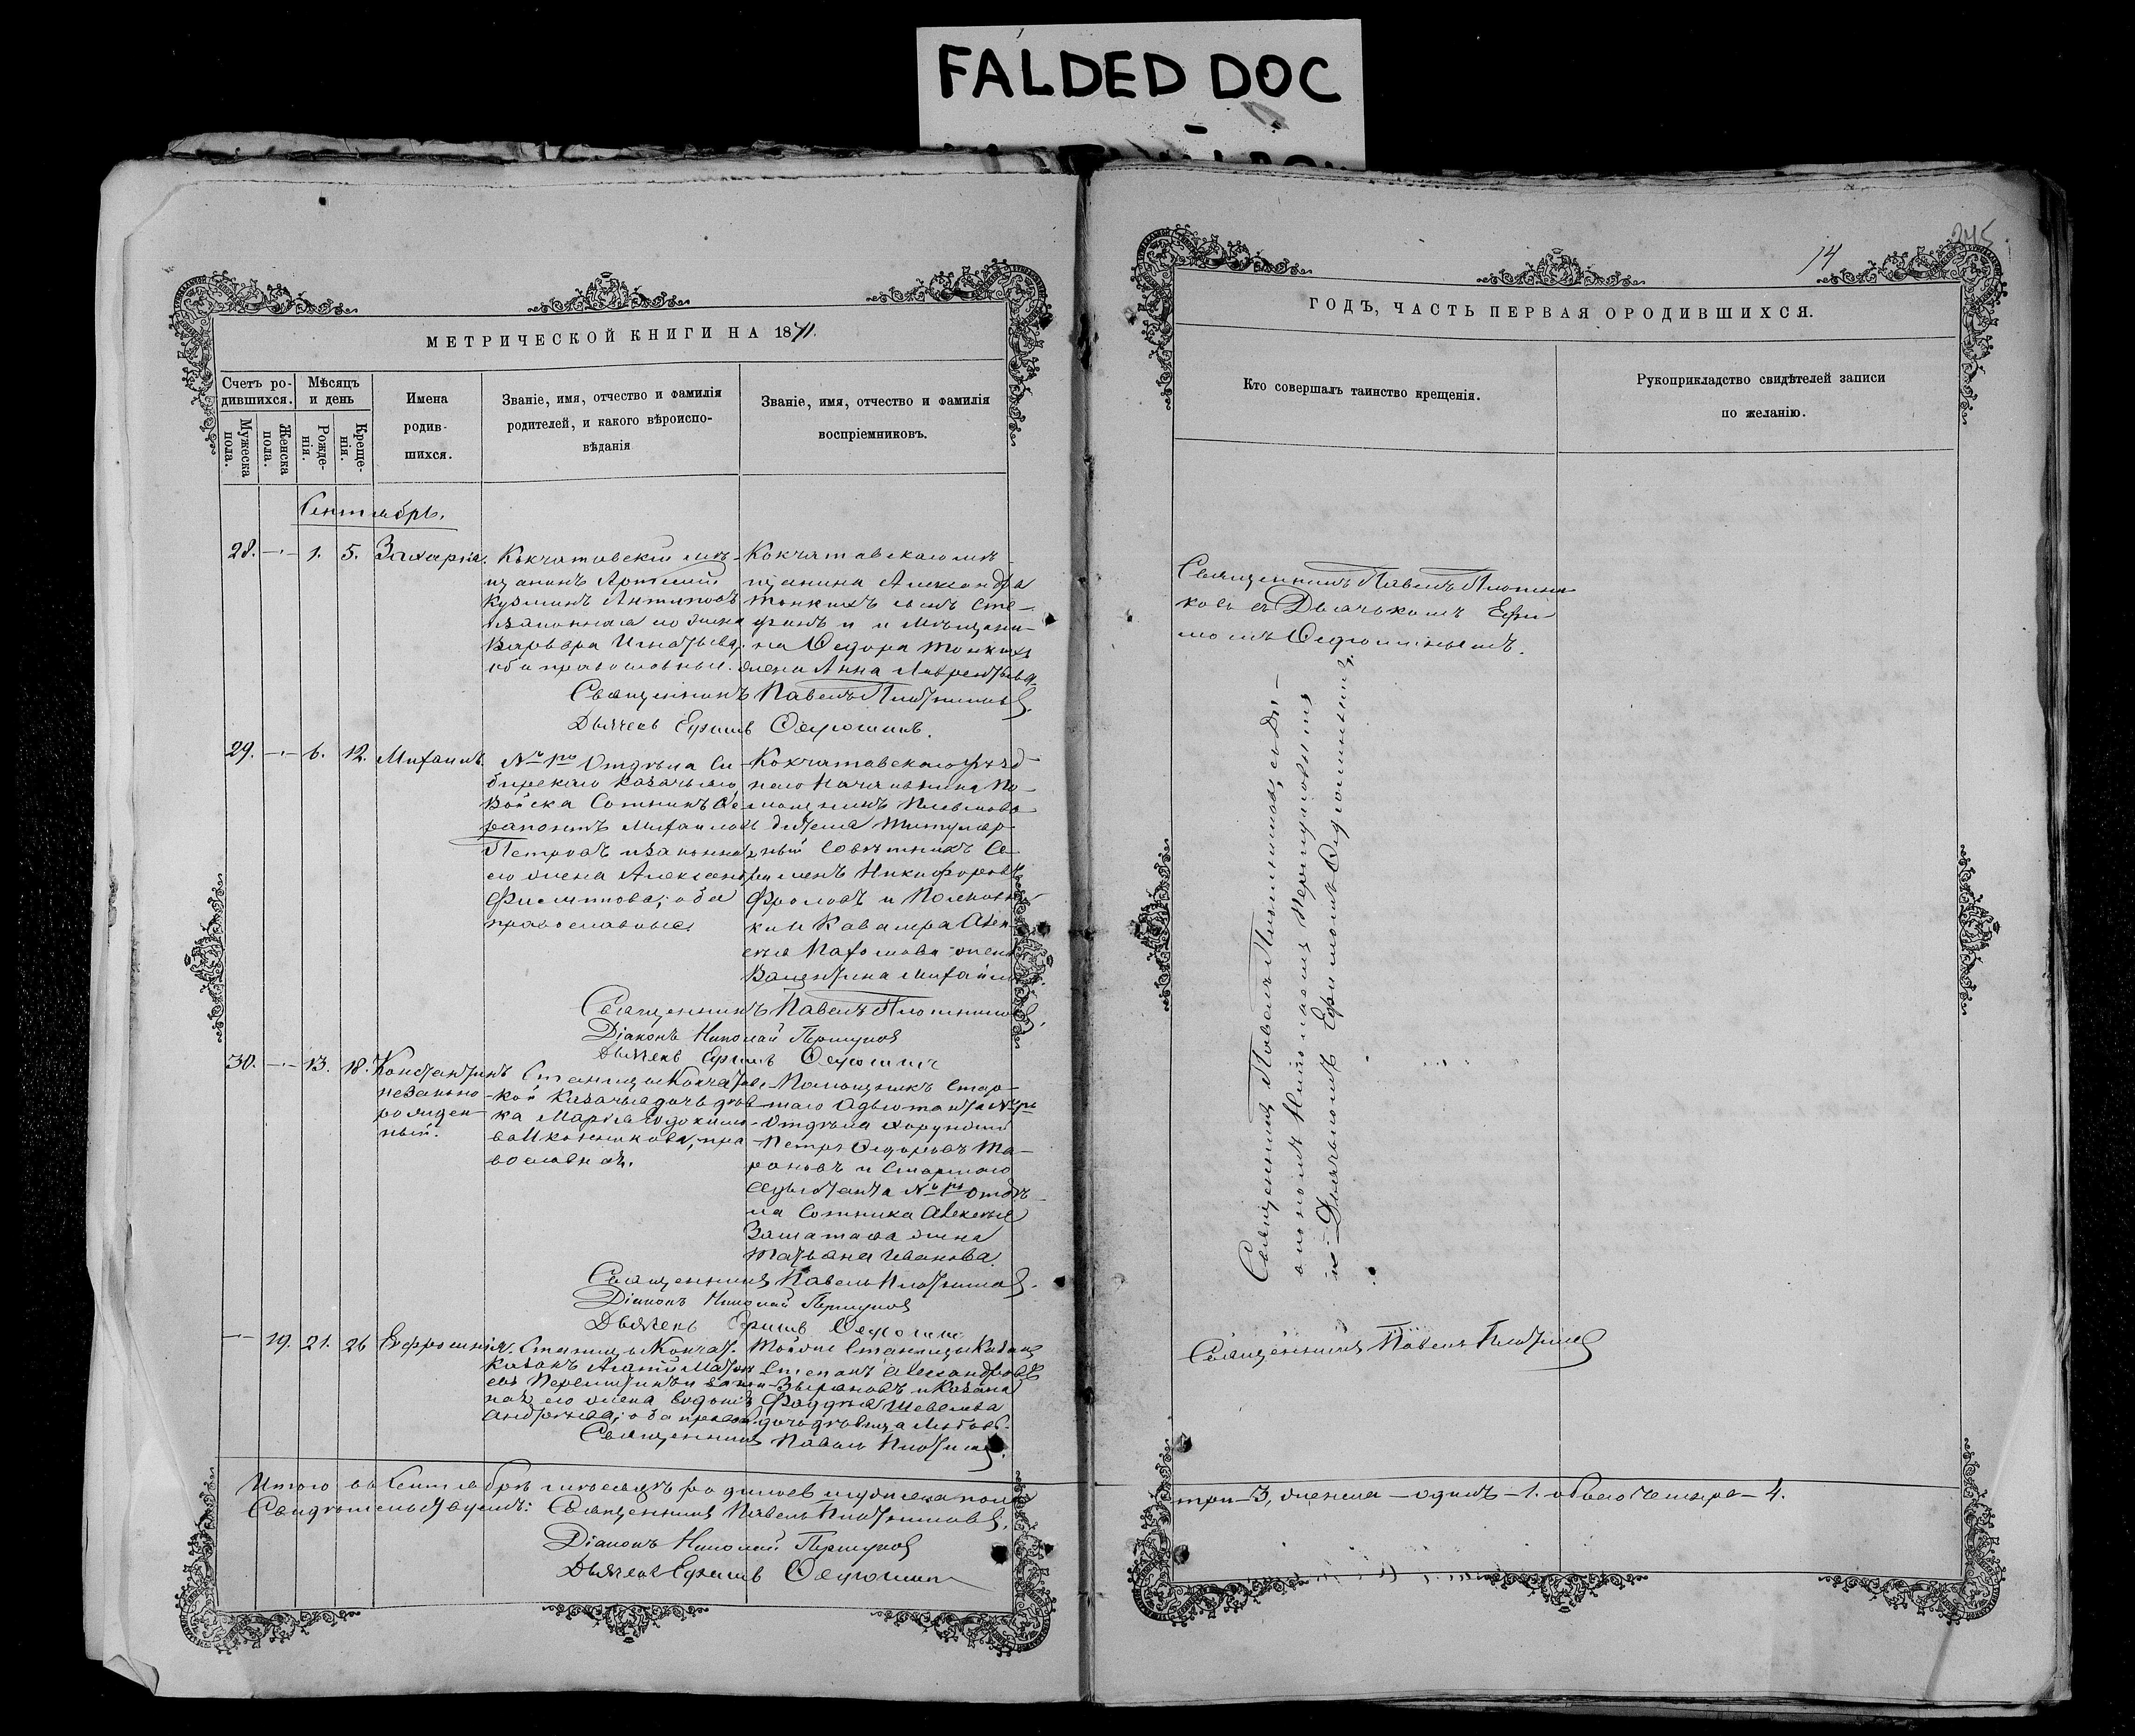 FALDED DOC
МЕТРИЧЕСКОЙ КНИГИ НА 1871.
Счетъ ро-
дившихся.
Мужеска
пола.
Женска
пола.
Мѣсяцъ
и день
Рожде-
нія.
Креще-
нія.
Имена
родив-
шихся.
Званіе, имя, отчество и фамилія
родителей, и какого вѣроиспо-
вѣданія
Званіе, имя, отчество и фамилія
воспріемниковъ.
Сентябрь.
28. — 1. 5. Захарія.
Кокчатавскій мѣ-
щанинъ Артемій
Кузминъ Антиповъ
и законная его жена
Варвара Игнатьева,
оба православные.
Кокчатавскаго мѣ-
щанина Александра
Тонкихъ сынъ Сте-
фанъ и мѣщани-
на Ѳедора Тонкихъ
жена Анна Лаврентьева
Священникъ Павелъ Плотниковъ
Дьячекъ Ефимъ Ѳедюшинъ.
29. — 6. 12. Михаилъ.
№ 1го Отдѣла Си-
бирскаго казачьяго
Войска Сотникъ Ѳе
рапонтъ Михаиловъ
Петровъ и законная
его жена Александра
Филиппова; оба
православные.
Кокчатавскаго уѣзд-
наго Начальника По-
мощникъ
Титуляр-
ный Совѣтникъ Се-
менъ Никифоровъ
Фроловъ и Полковни
ка и Кавалера Алек-
сѣя жена
Валентина Михайлова.
Священникъ Павелъ Плотниковъ.
Діаконъ Николай
Дьячекъ Ефимъ Ѳедюшинъ
30. — 13. 18. Константинъ
незаконно-
рожден-
ный.
Станицы Кокчатав-
кой казачья дочь дѣв
ка Марія Евдокимо-
ва Иконникова, пра
вославная.
Помощникъ Стар-
шаго Адъютанта № 1го
Отдѣла хорунжій
Петръ Ѳедоровъ
и Старшаго
Адъютанта № 1го отдѣ-
ла Сотника Алексѣя
жена
Татьяна Иванова.
Священникъ Павелъ Плотниковъ.
Діаконъ Николай
Дьячекъ Ефимъ Ѳедюшинъ
— 19. 21. 26 Евфросинія.
Станицы Кокчат.
казакъ
и закон-
ная его жена Евдокія
Андреева; оба правосл
Тойже Станицы казакъ
Степанъ Александровъ
Зыряновъ и казака
Фаддея Шевелева
дочь дѣвица Любовь.
Священникъ Павелъ Плотниковъ.
Итого въ Сентябрѣ мѣсяцѣ родилось мужеска пола
Свидѣтельствуемъ: Священникъ Павелъ Плотниковъ.
Діаконъ Николай
Дьячекъ Ефимъ Ѳедюшинъ
14
245
ГОДЪ, ЧАСТЬ ПЕРВАЯ О РОДИВШИХСЯ.
Кто совершалъ таинство крещенія.
Рукоприкладство свидѣтелей записи
по желанію.
Священникъ Павелъ Плотни-
ковъ съ Дьячькомъ Ефи
момъ Ѳедюшинымъ.
Священникъ Павелъ Плотниковъ, съ Ді-
акономъ Николаемъ
и Дьячькомъ Ефимомъ Ѳедюшинымъ.
Священникъ Павелъ Плотниковъ
три—3, женска—одинъ—1. обоего четыре—4.